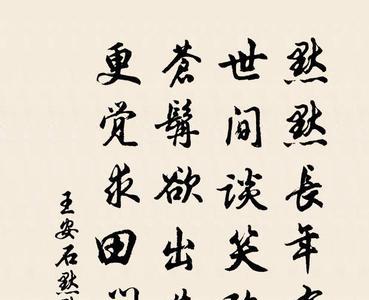 默默長年
世间谈笑
蒼髯欲出
更觉求田
王安石默